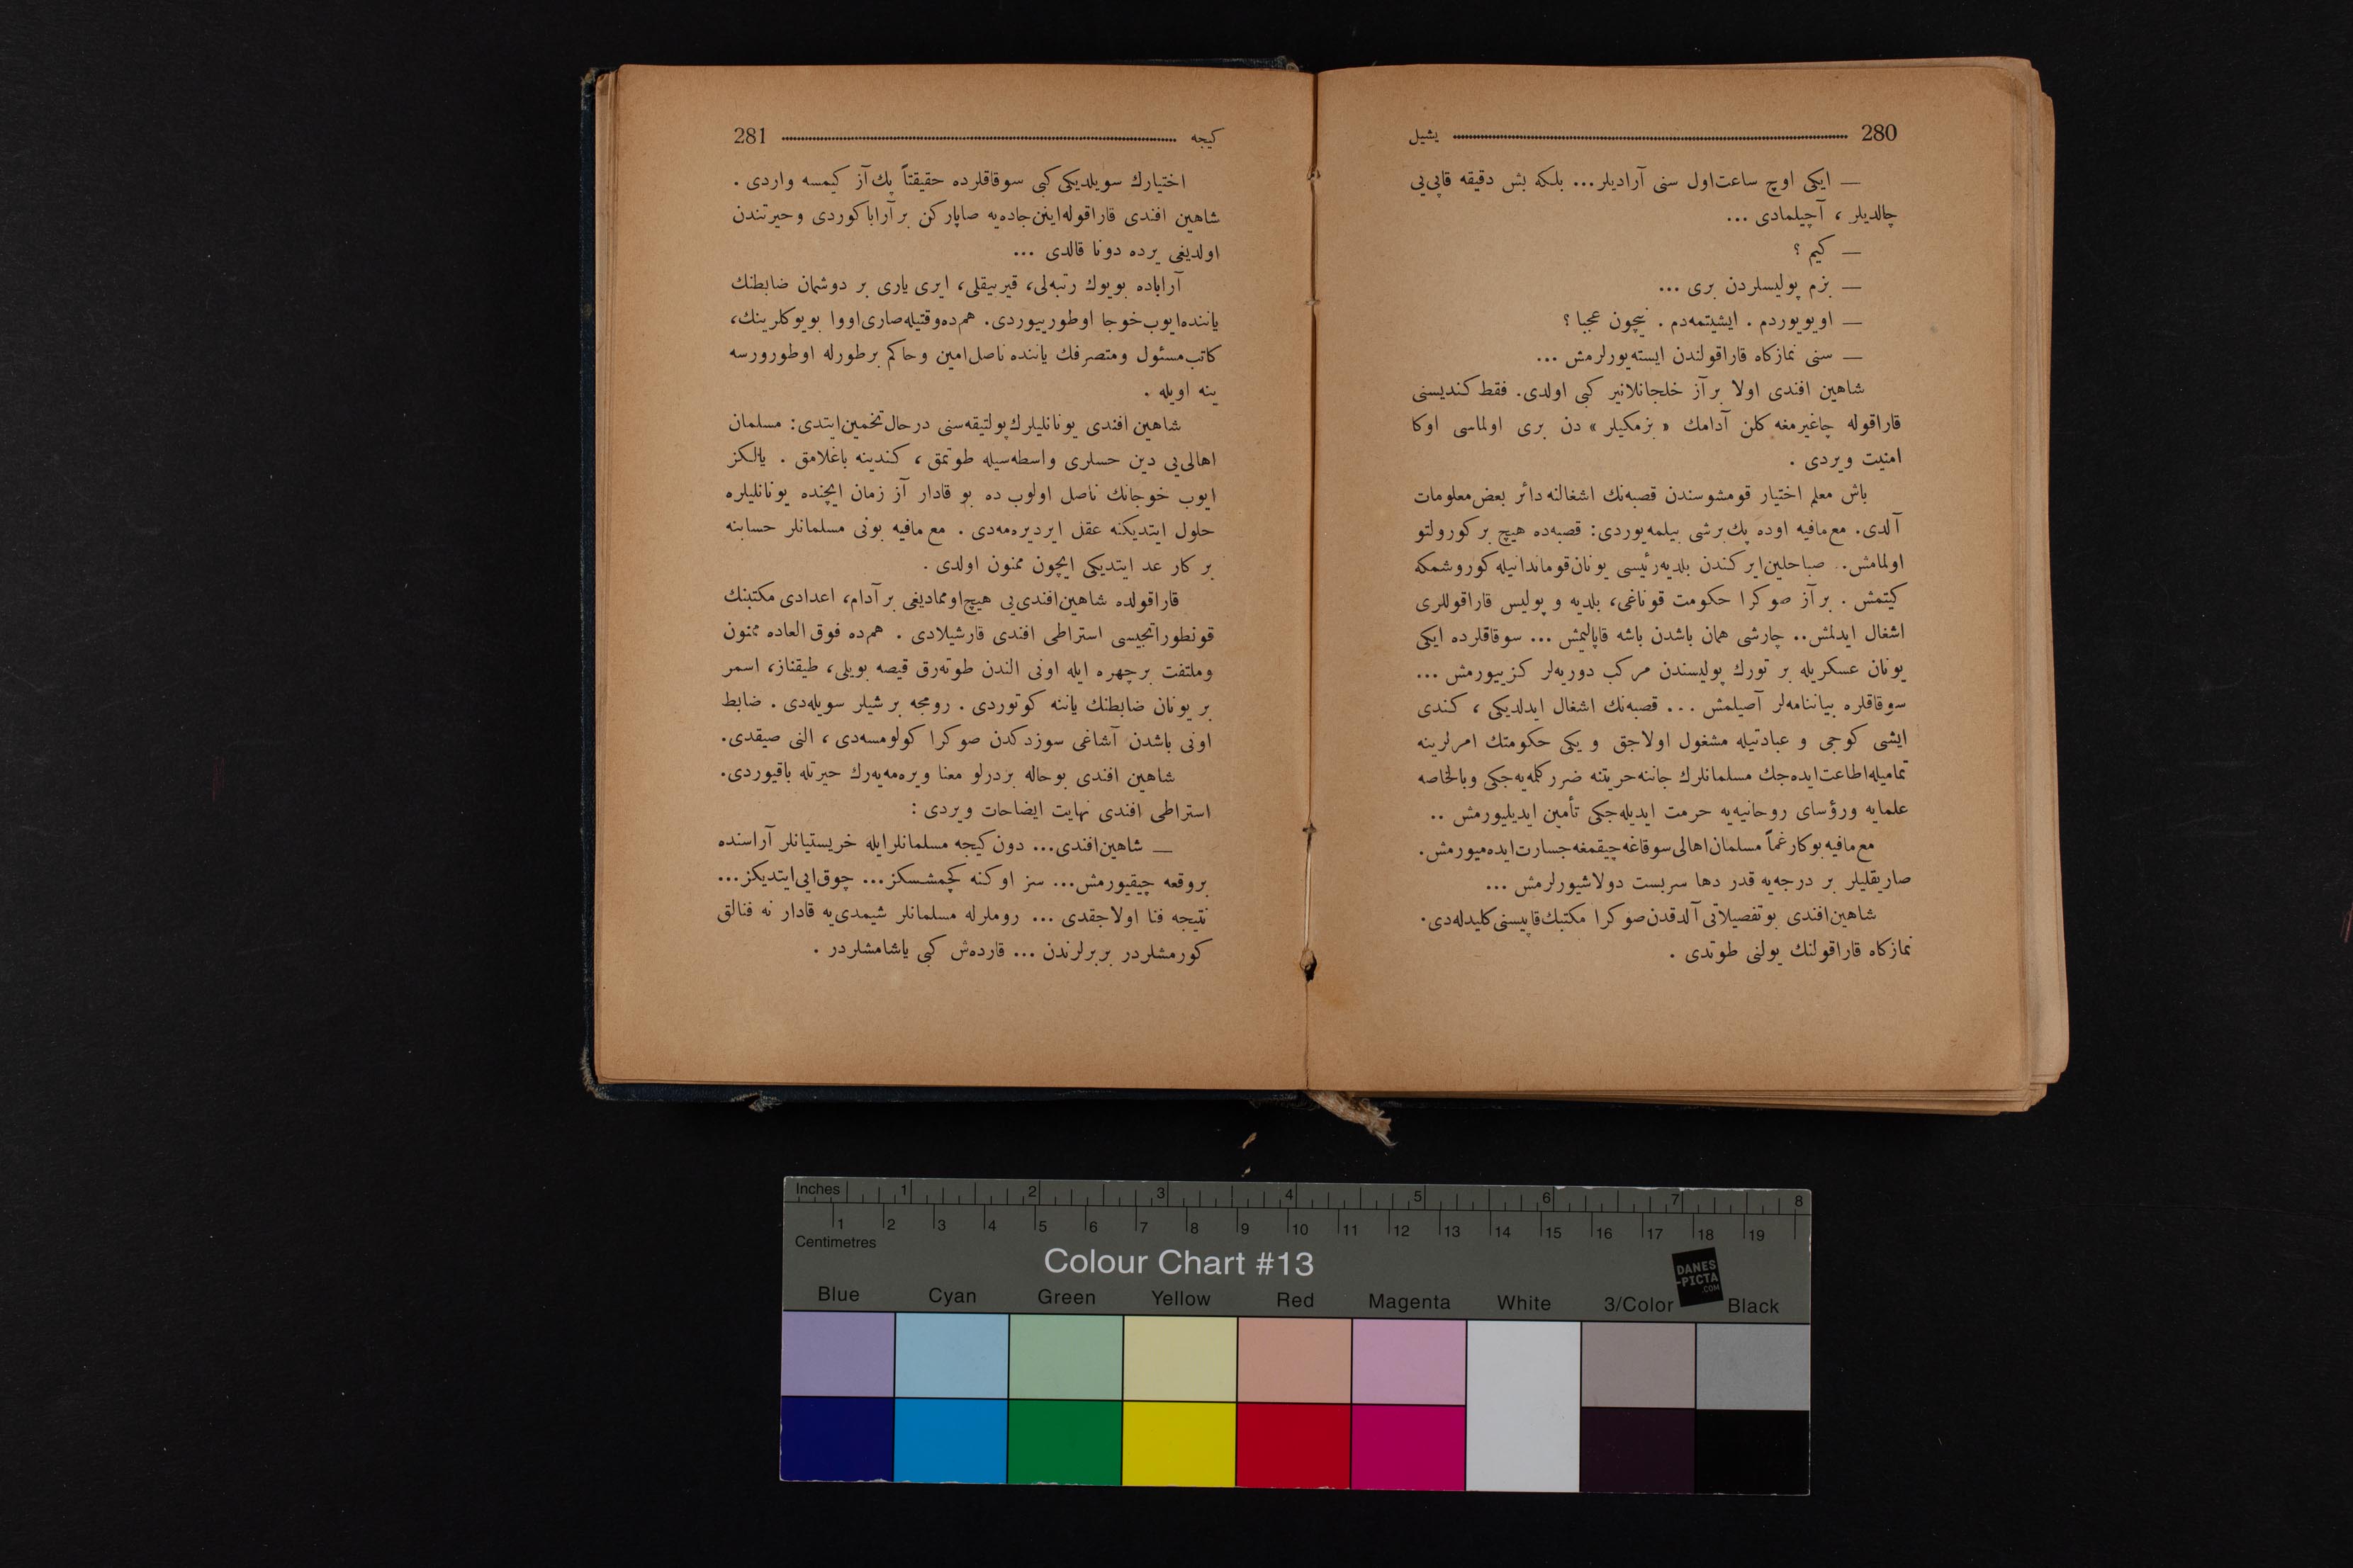 280 یشیل
— ایکی اوچ ساعت‌اول سنی آرادیلر... بلکه بش دقیقه قاپی‌یی
چالدیلر ، آچیلمادی ...
— کیم ؟
— بزم پولیسلردن بری ...
— اویویوردم . ایشیتمه‌دم . نیچون عجبا ؟
— سنی نمازکاه قاراقولندن ایسته‌یورلرمش ...
شاهین افندی اولا بر آز خلجانلانیر کبی اولدی. فقط کندیسنی
قاراقوله چاغیرمغه کلن آدامك « بزمکیلر » دن بری اولماسی اوکا
امنیت ویردی .
باش معلم اختیار قومشوسندن قصبه‌نك اشغالنه دائر بعض معلومات
آلدی. مع‌مافیه اوده پك برشی بیلمه‌یوردی: قصبه‌ده هیچ بر کورولتو
اولمامش. صباحلین ایرکندن بلدیه رئیسی یونان قوماندانیله کوروشمکه
کیتمش . بر آز صوکرا حکومت قوناغی، بلدیه و پولیس قاراقوللری
اشغال ایدلمش.. چارشی همان باشدن باشه قاپالیمش ... سوقاقلرده ایکی
یونان عسکریله بر تورك پولیسندن مرکب دوریه‌لر کزییورمش ...
سوقاقلره بیاننامه‌لر آصیلمش ... قصبه‌نك اشغال ایدلدیکی ، کندی
ایشی کوجی و عبادتیله مشغول اولاجق و یکی حکومتك امرلرینه
تمامیله اطاعت ایده‌جك مسلمانلرك جاننه حریتنه ضرر کلمه‌یه‌جکی وبالخاصه
علمایه ورؤسای روحانیه‌یه حرمت ایدیله‌جکی تأمین ایدیلیورمش ..
مع‌مافیه بوکا رغماً مسلمان اهالی سوقاغه چیقمغه جسارت ایده‌میورمش.
صاریقلیلر بر درجه‌یه قدر دها سربست دولاشیورلرمش ...
شاهین افندی بو تفصیلاتی آلدقدن صوکرا مکتبك قاپیسنی کلیدله‌دی.
نمازکاه قاراقولنك یولنی طوتدی .
کیجه 281
اختیارك سویلدیکی کبی سوقاقلرده حقیقتاً پك آز کیمسه واردی .
شاهین افندی قاراقوله اینن جاده‌یه صاپارکن بر آرابا کوردی وحیرتندن
اولدیغی یرده دونا قالدی ...
آراباده بویوك رتبه‌لی، قیر بیقلی، ایری یاری بر دوشمان ضابطنك
یاننده ایوب خوجا اوطورییوردی. هم‌ده وقتیله صاری اووا بویوکلرینك،
کاتب مسئول ومتصرفك یاننده ناصل امین وحاکم برطورله اوطورورسه
ینه اویله .
شاهین افندی یونانلیلرك پولتیقه‌سنی درحال تخمین ایتدی: مسلمان
اهالی‌یی دین حسلری واسطه‌سیله طوتمق ، کندینه باغلامق . یالکز
ایوب خوجانك ناصل اولوب ده بو قادار آز زمان ایچنده یونانلیلره
حلول ایتدیکنه عقل ایردیره‌مه‌دی . مع مافیه بونی مسلمانلر حسابنه
بر کار عد ایتدیکی ایچون ممنون اولدی .
قاراقولده شاهین افندی‌یی هیچ اوممادیغی بر آدام، اعدادی مکتبنك
قونطوراتجیسی استراطی افندی قارشیلادی . هم‌ده فوق العاده ممنون
وملتفت بر چهره ایله اونی الندن طوته‌رق قیصه بویلی، طیقناز، اسمر
بر یونان ضابطنك یاننه کوتوردی . رومجه بر شیلر سویله‌دی . ضابط
اونی باشدن آشاغی سوزدکدن صوکرا کولومسه‌دی ، النی صیقدی.
شاهین افندی بوحاله بردرلو معنا ویره‌مه‌یه‌رك حیرتله باقیوردی.
استراطی افندی نهایت ایضاحات ویردی :
— شاهین افندی... دون کیجه مسلمانلر ایله خریستیانلر آراسنده
بر وقعه چیقیورمش... سز اوکنه کچمشسکز... چوق ایی ایتدیکز...
نتیجه فنا اولاجقدی ... روملرله مسلمانلر شیمدی‌یه قادار نه فنالق
کورمشلردر بربرلرندن ... قارده‌ش کبی یاشامشلردر .
Inches 1 2 3 4 5 6 7 8
1 2 3 4 5 6 7 8 9 10 11 12 13 14 15 16 17 18 19
Centimetres
Colour Chart #13
DANES
-PICTA
.COM
Blue Cyan Green Yellow Red Magenta White 3/Color Black